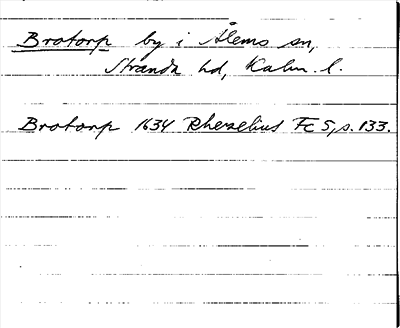 Brotorp by i Ålems sn,
Stranda hd, Kalm. l.
Brotorp 1634 Rhezelius Fc 5, s. 133.